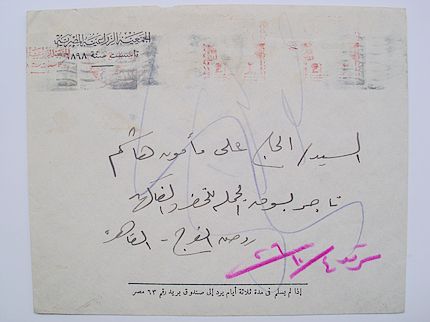 الجمعية الزراعية المصرية
تأسست سنة ١٨٩٨
السيد/ الحاج على مأمون هاشم
تاجر بسوق الجملة للخضر والفاكهة
روض الفرج - القاهرة
إذا لم يسلم فى مدة ثلاثة أيام يرد إلى صندوق بريد رقم ٦٣ مصر